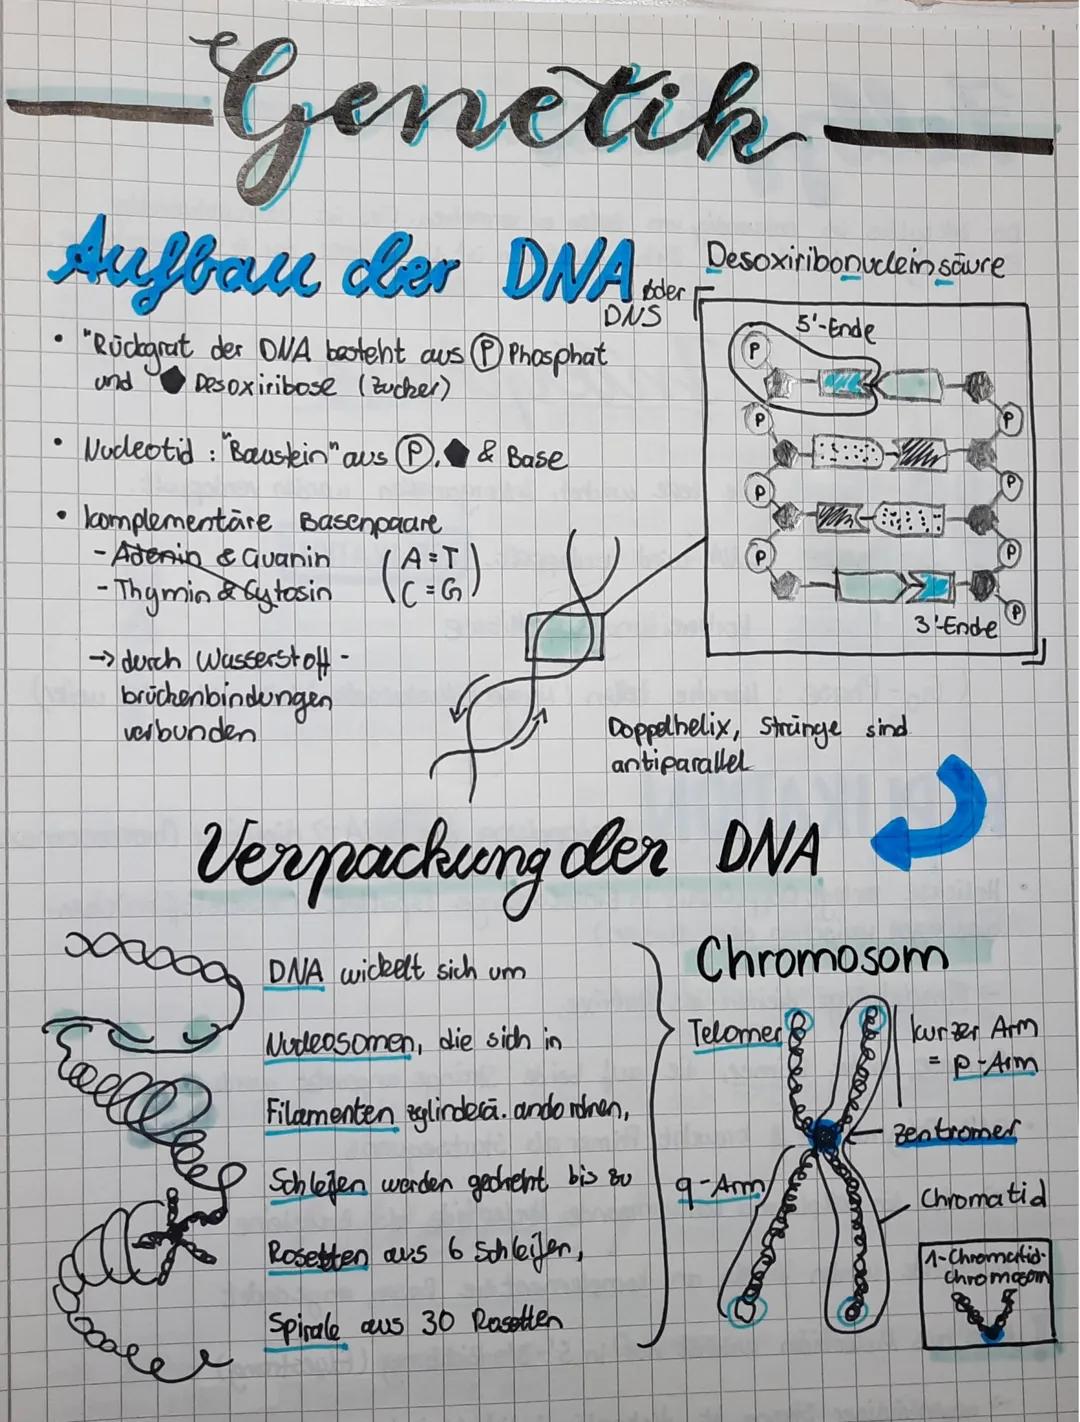 Genetik
Aufbau der DNA oder
DNS
Desoxiribonucleinsäure
• "Rückgrat der DNA besteht aus Ⓟ Phosphat
und ⬟ Desoxiribose (Zucker)
• Nucleotid : "Baustein" aus Ⓟ, ⬟ & Base
• komplementäre Basenpaare
- Adenin & Guanin
- Thymin & Cytosin
(A=T)
(C=G)
→ durch Wasserstoff-
brückenbindungen
verbunden
5'-Ende
P
P
P
P
P
P
P
P
3'-Ende
Doppelhelix, Stränge sind
antiparallel
Verpackung der DNA
DNA wickelt sich um
Nucleosomen, die sich in
Filamenten anordnen,
Schleifen werden gedreht bis zu
Rosetten aus 6 Schleifen,
Spirale aus 30 Rosetten
Chromosom
Telomer
kurzer Arm
= p-Arm
Zentromer
q-Arm
Chromatid
1-Chromatid-
chromosom